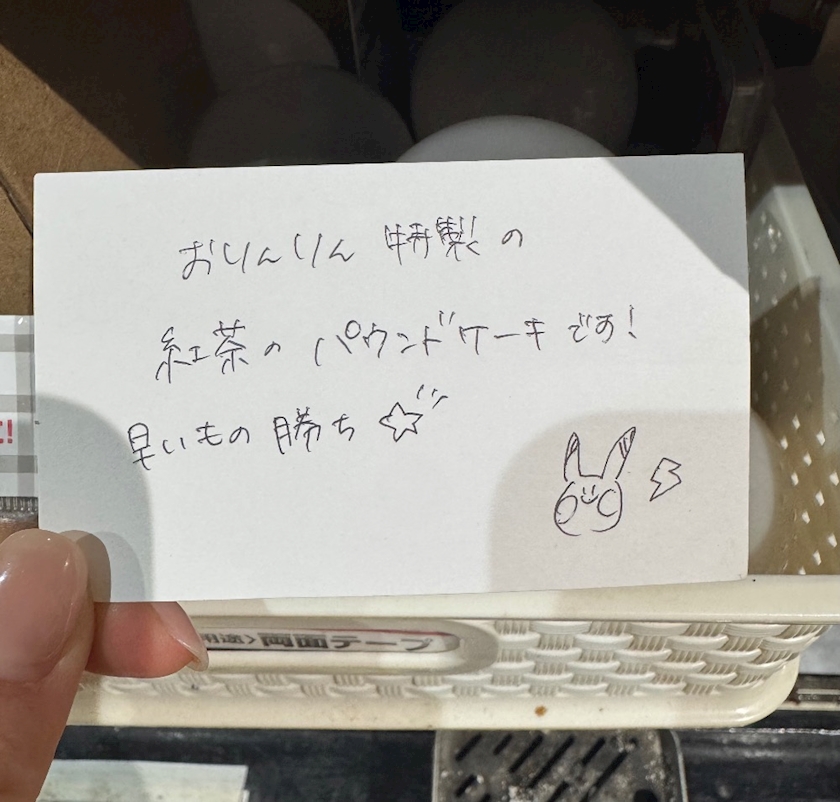 おりんりん 特製の
紅茶の パウンドケーキです!
早いもの勝ち☆
用途>両面テープ
!